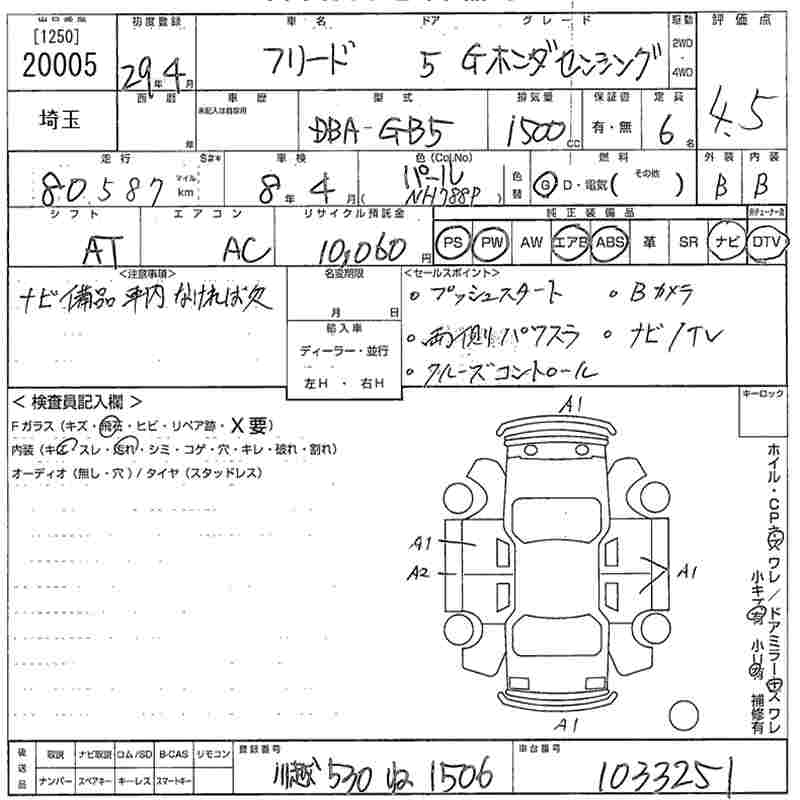 出品番号 初度登録 車名 ドア グレード 駆動 評価点
[1250]
20005 29年4月 フリード 5 Gホンダセンシング 2WD・4WD 4.5
埼玉 西暦 年 車歴 未記入は自家用 型式 排気量 保証書 定員
DBA-GB5 1500cc 有・無 6名
走行 S#* 車検 色(Col.No) 色替 燃料 外装 内装
80,587 マイル km 8年4月 (パール NH788P) Ⓖ D・電気 (その他 ) B B
シフト エアコン リサイクル預託金 純正装備品
AT AC 10,060円 PS PW AW エアB ABS 革 SR ナビ DTV
<注意事項> 名変期限 <セールスポイント>
ナビ備品 車内なければ欠 月 日 ・プッシュスタート ・Bカメラ
輸入車 ・両側パワスラ ・ナビ/TV
ディーラー・並行 ・クルーズコントロール
左H・右H
<検査員記入欄> キーロック
Fガラス (キズ・飛石・ヒビ・リペア跡・X要)
内装 (キズ・スレ・汚れ・シミ・コゲ・穴・キレ・破れ・割れ)
オーディオ (無し・穴) / タイヤ (スタッドレス)
A1
A1
A2
A1
A1
ホイル・CPキズ ワレ / ドアミラーキズ ワレ
小キズ有 小U有 補修有
後送品 取説 ナビ取説 コム/SD B-CAS リモコン 登録番号 車台番号
ナンバー スペアキー キーレス スマートキー 川越 530 ね 1506 1033251